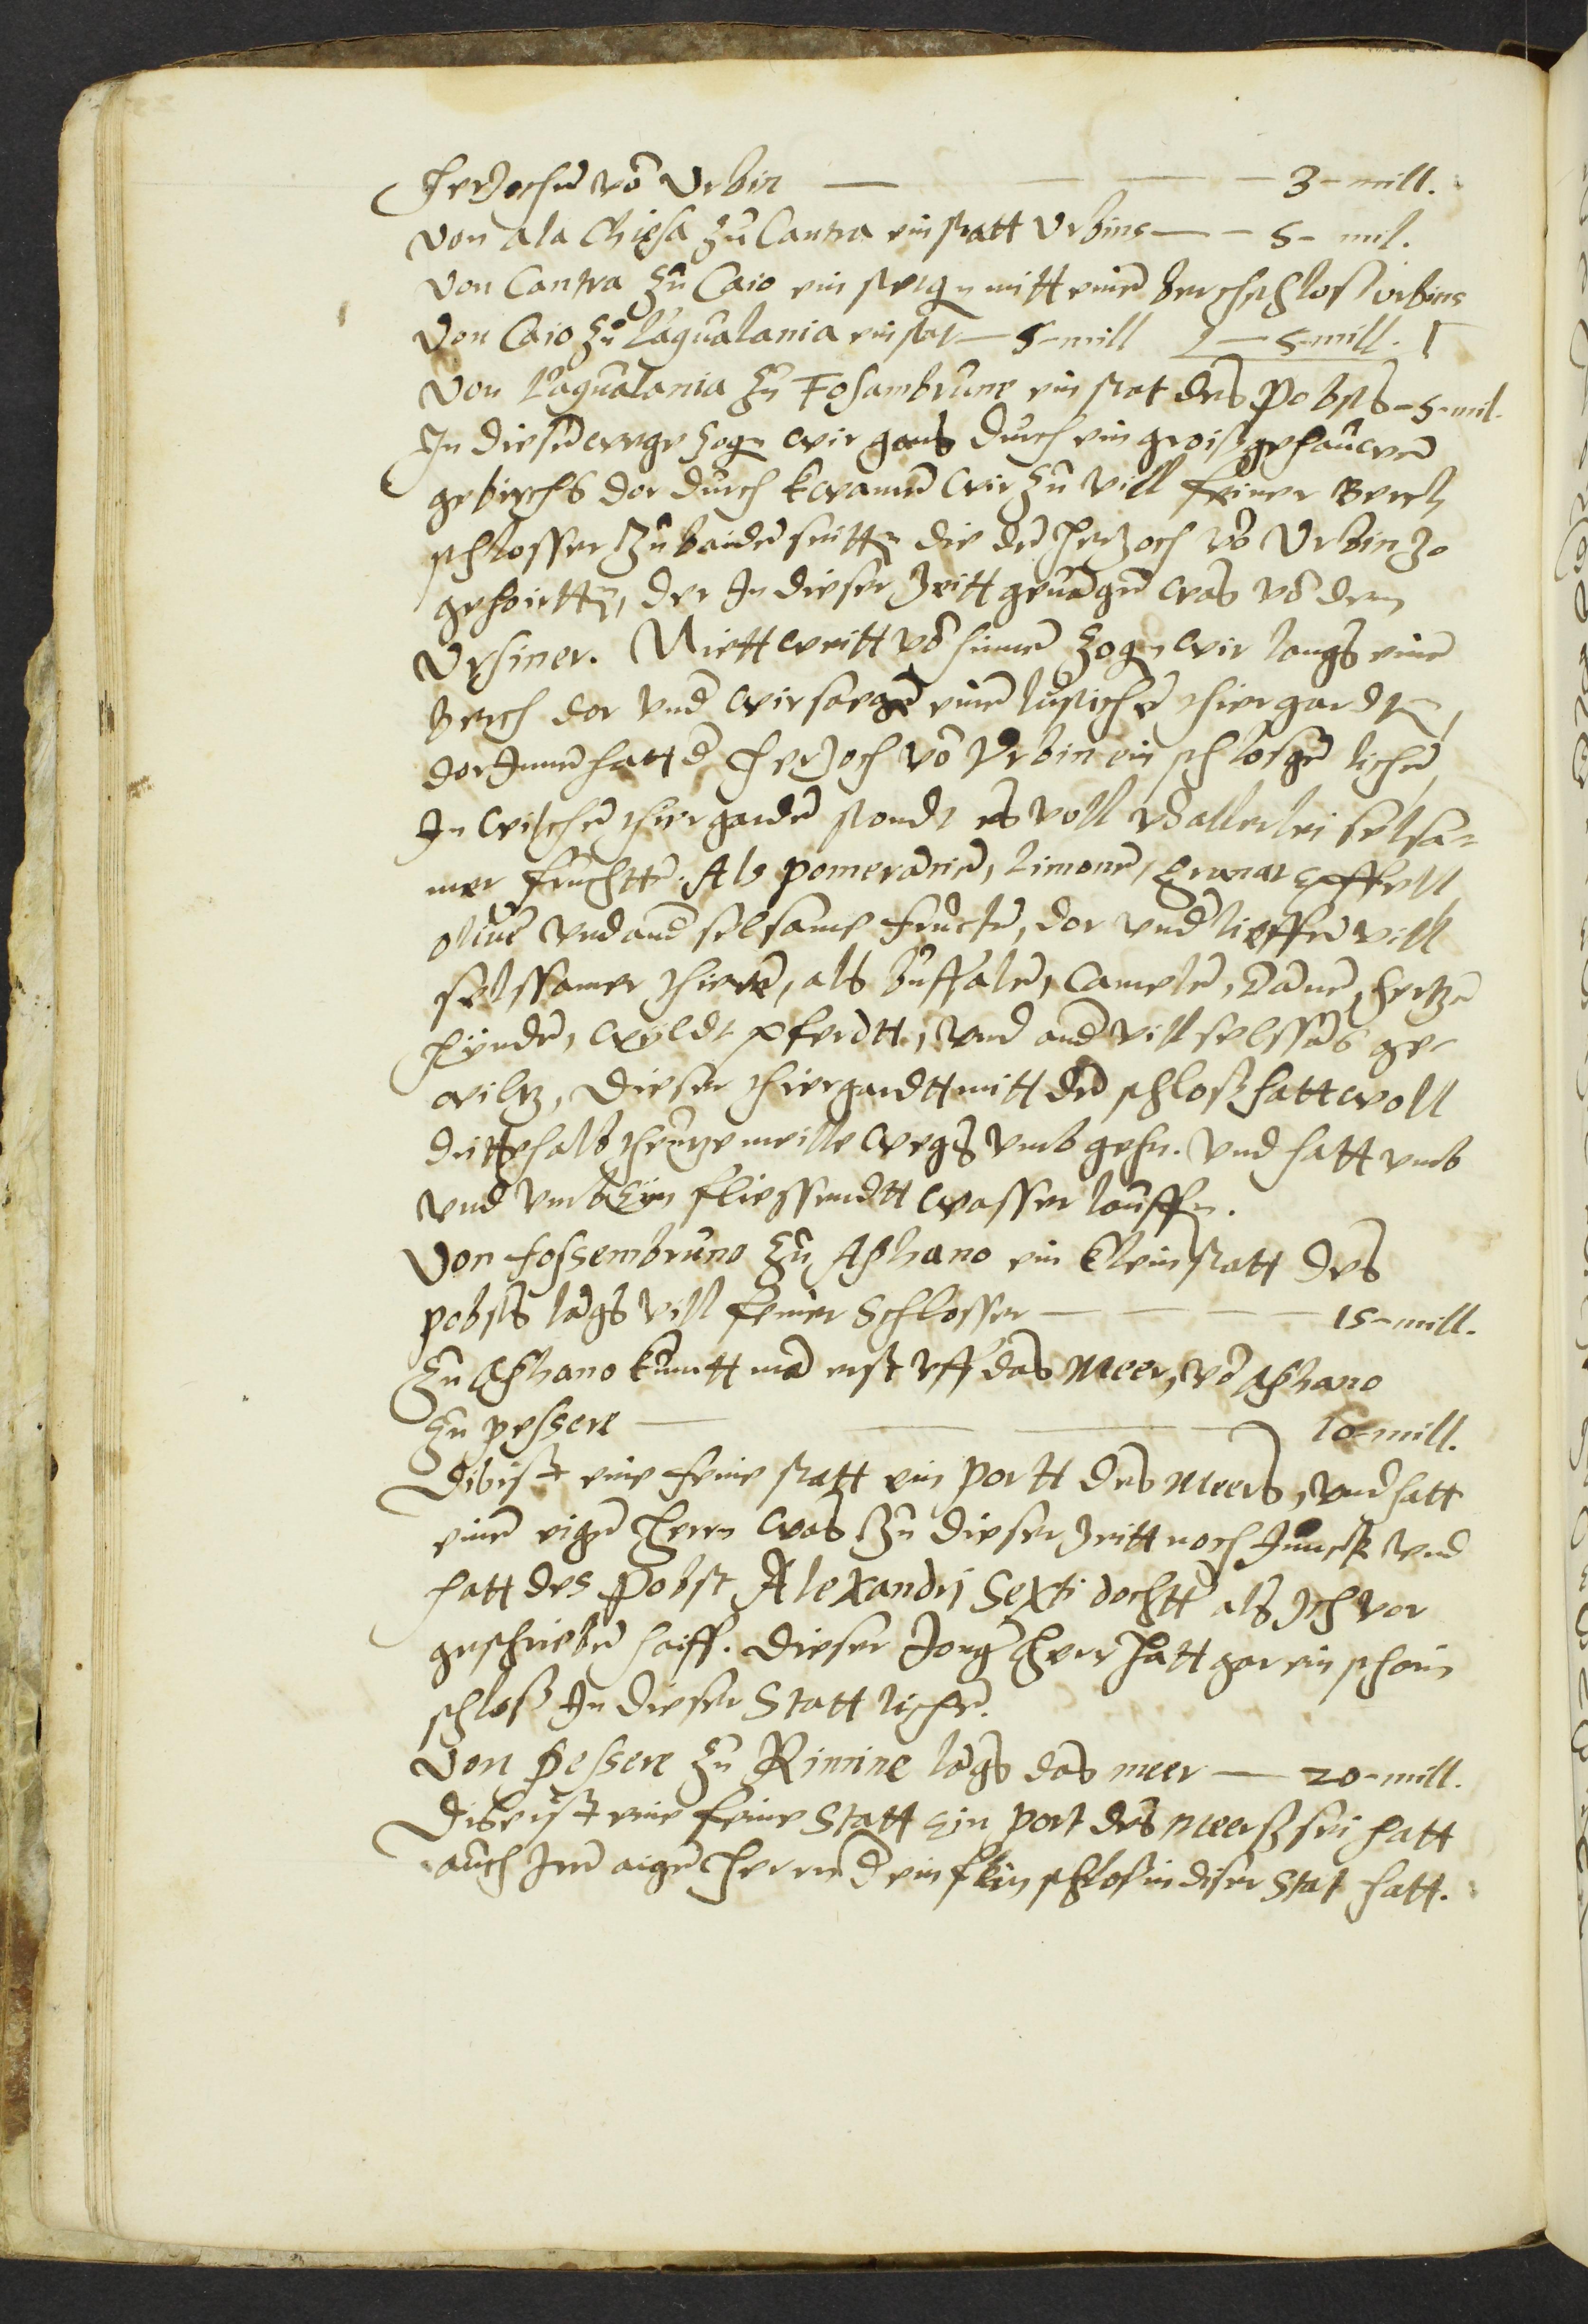 Hertzochen vō Vrbin — — — — 3 - mill.
Von ala Chiesa zu Cantra ein statt Vrbins — - 5 - mil.
Von Cantra zu Caio ein stetgē mitt einē berchschloss vrbins
Von Caio zu l'aqualania ein stat — 5 - mill — 5 - mill.
Von l'aqualania zu Fosambrune ein stat des Pobsts - 5 - mil.
In diesē wege zogē wir gans durch ein groiss gehauwen
gebirchs dor durch kwamē wir zu vill feiner Berch
schlosser zu baidē seittē die dē hertzoch vō Vrbin zo
gehoirttē, der In dieser zeitt geuāgē was vō dem
Vrsiner. Niett weitt vō hinnē zogē wir langs einē
berch dor vnd wir saegē einē lustichē thiergardtē,
dor Innē hatt d hertzoch vō Vrbin ein schlosgē lichē
In wilchē thiergardē stondt es voll vō allerlei selsa=
mer fruchttē. Als pomerāniē, limonē, granat epffell
oliuē vnd and selsame fructē, dor vnd lieffē vill
selssamer thierē, als buffalē, Camelē, Dānē, hertzē
hyndē, wyldt pferdtt, vnd and vill selssās ge-
wiltz, Dieser thiergardtt mitt dē schloss hatt woll
dritthalb theutze meille wegs vmbgehn. Vnd hatt vmb
vnd vmb eyn fliessendtt wasser lauffē.
Von fossembruno zu Aphano ein klein statt des
Pobsts lāgs vill feiner Schlosser — — — 15 - mill.
Zu Aphano kumtt mā erst vff das Meer, vō Aphano
zu pessere — — — — 10 - mill.
Dis ist eine feine statt ein portt des Meers, vnd hatt
einē eigē herrn was zu dieser zeitt noch Iunck vnd
hatt des Pobst Alexandri Sexti dochtt als Ich vor
geschriebē haiff. Dieser Jong herr hatt gar ein schoin
schloss In dieser Statt lichē.
Von Pessere zu Rimine lāgs das meer — 20 - mill.
Dis ist eine feine Statt ein port des meers sei hatt
auch Irē aigē herrn d ein fein schloss in diser Stat hatt.